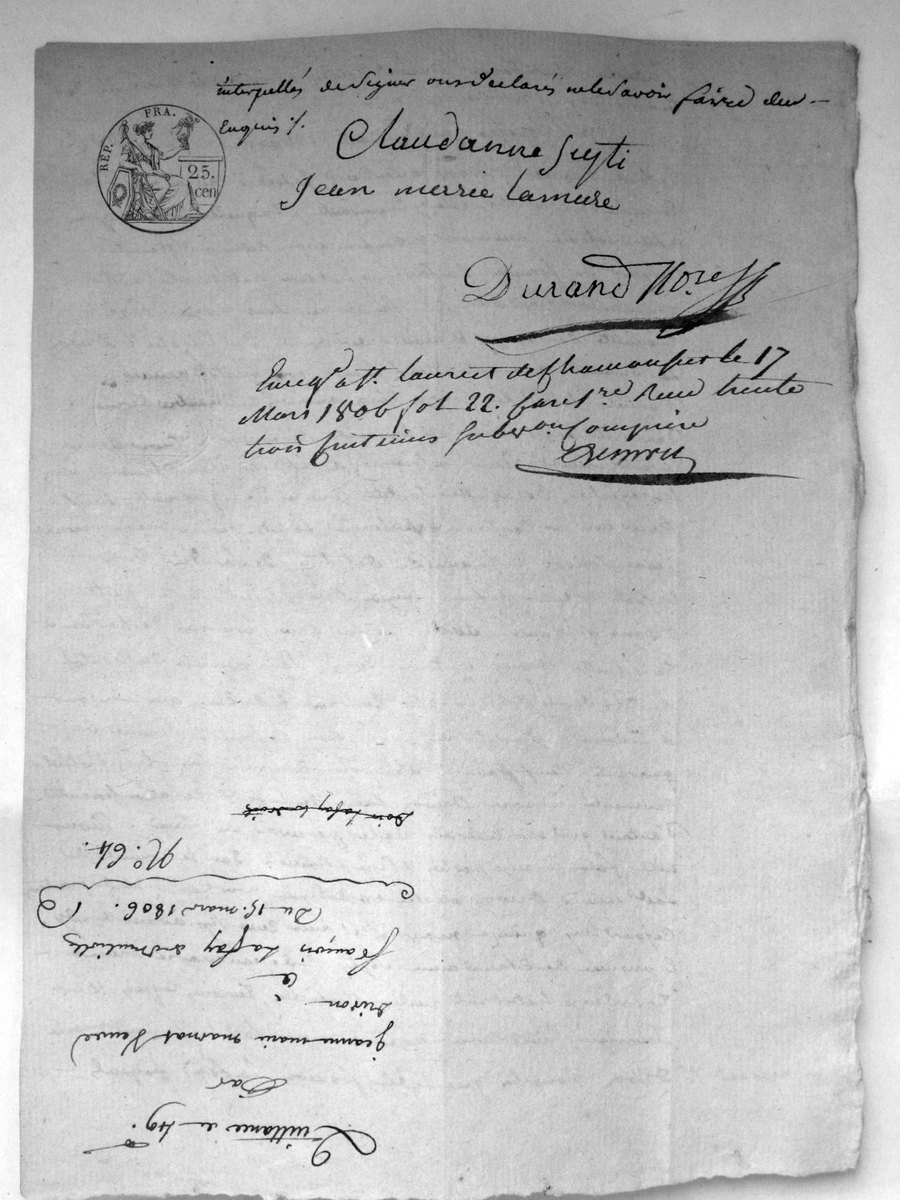 interpellés de signer ont déclarés ne le savoir faire de ce
Enquis /.
REP. FRA.
25.
cen
Claudanne Seyti
Jean merrie Lamure
Durand Nore
Enregé a St. Laurent de Chamousset le 17
Mars 1806 fol 22. Case 1re Reçu trente
trois centimes Subvon Comprise
Quittance
Par
jeanne marie marnat veuve
Drivon
à
françois Laffay
Du 15. mars 1806.
No. 64.